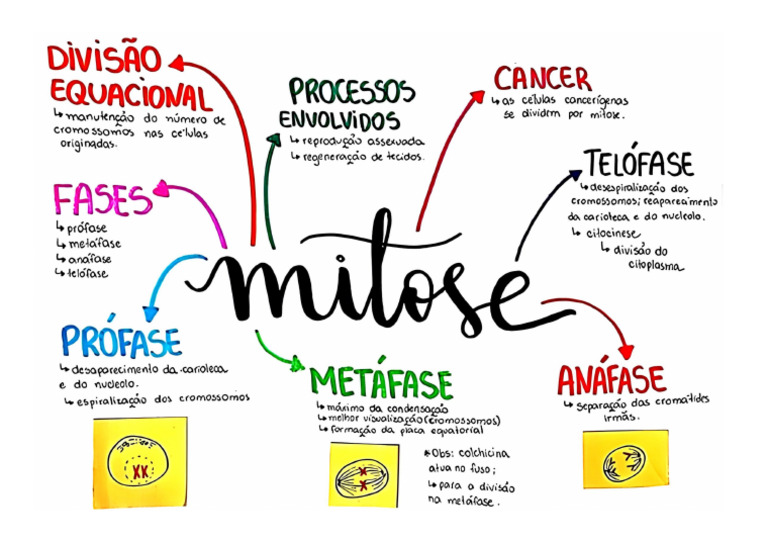 DIVISÃO
EQUACIONAL
↳ manutenção do número de
cromossomos nas células
originadas.
PROCESSOS
ENVOLVIDOS
↳ reprodução assexuada
↳ regeneração de tecidos.
CANCER
↳ as células cancerígenas
se dividem por mitose.
TELÓFASE
↳ desespiralização dos
cromossomos; reaparecimento
da carioteca e do nucleolo.
↳ citocinese
↳ divisão do
citoplasma
FASES
↳ prófase
↳ metáfase
↳ anáfase
↳ telófase
mitose
PRÓFASE
↳ desaparecimento da carioteca
e do nucleolo.
↳ espiralização dos cromossomos
METÁFASE
↳ máximo da condensação
↳ melhor visualização (cromossomos)
↳ formação da placa equatorial
* Obs: colchicina
atua no fuso;
↳ para a divisão
na metáfase.
ANÁFASE
↳ separação das cromátides
irmãs.